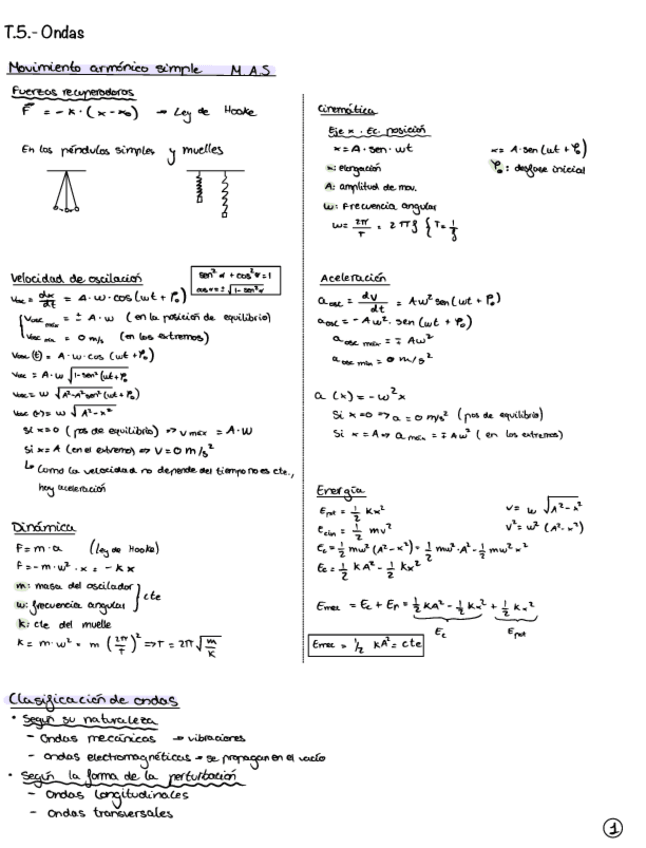 T.5.- Ondas
Movimiento armónico simple M.A.S
Fuerzas recuperadoras
F = -K·(x-x₀) → Ley de Hooke
En los péndulos simples y muelles
Velocidad de oscilación
sen² α + cos² α = 1
cos α = ± √(1-sen² α)
Vosc = dx/dt = A·w·cos(wt + φ₀)
Vosc máx = ± A·w (en la posición de equilibrio)
Vosc mín = 0 m/s (en los extremos)
Vosc (t) = A·w·cos (wt + φ₀)
Vosc = A·w √(1-sen²(wt+φ₀
Vosc = w √(A²-A²sen²(wt+φ₀)
Vosc (x) = w √(A²-x²)
Si x=0 (pos de equilibrio) => Vmáx = A·w
Si x=A (en el extremo) => V=0 m/s²
↳ Como la velocidad no depende del tiempo no es cte.,
hay aceleración
Dinámica
F=m·a (ley de Hooke)
F=-m·w²·x = -Kx
m: masa del oscilador
w: frecuencia angular
} cte
K: cte del muelle
K = m·w² = m (2π/T)² => T = 2π √(m/K)
Cinemática
Eje x. Ec. posición
x = A·sen·wt
x = A·sen(wt + φ₀)
x: elongación
φ₀: desfase inicial
A: amplitud de mov.
w: Frecuencia angular
w = 2π/T = 2πf { T = 1/f
Aceleración
aosc = dv/dt = Aw² sen(wt + φ₀)
aosc = -Aw². sen(wt + φ₀)
aosc máx = ∓ Aw²
aosc mín = 0 m/s²
a (x) = -w²x
Si x=0 => a = 0 m/s² (pos de equilibrio)
Si x = A => a máx = ∓ Aw² (en los extremos)
Energía
Epot = 1/2 Kx²
V = w √(A²-x²)
Ecin = 1/2 mv²
V² = w² (A²-x²)
Ec = 1/2 mw² (A²-x²) = 1/2 mw²·A² - 1/2 mw²x²
Ec = 1/2 KA² - 1/2 Kx²
Emec = Ec + Ep = 1/2 KA² - 1/2 Kx² + 1/2 Kx²
Ec Epot
Emec = 1/2 KA² = cte
Clasificación de ondas
• Según su naturaleza
- Ondas mecánicas → vibraciones
- Ondas electromagnéticas → se propagan en el vacío
• Según la forma de la perturbación
- Ondas longitudinales
- Ondas transversales
1